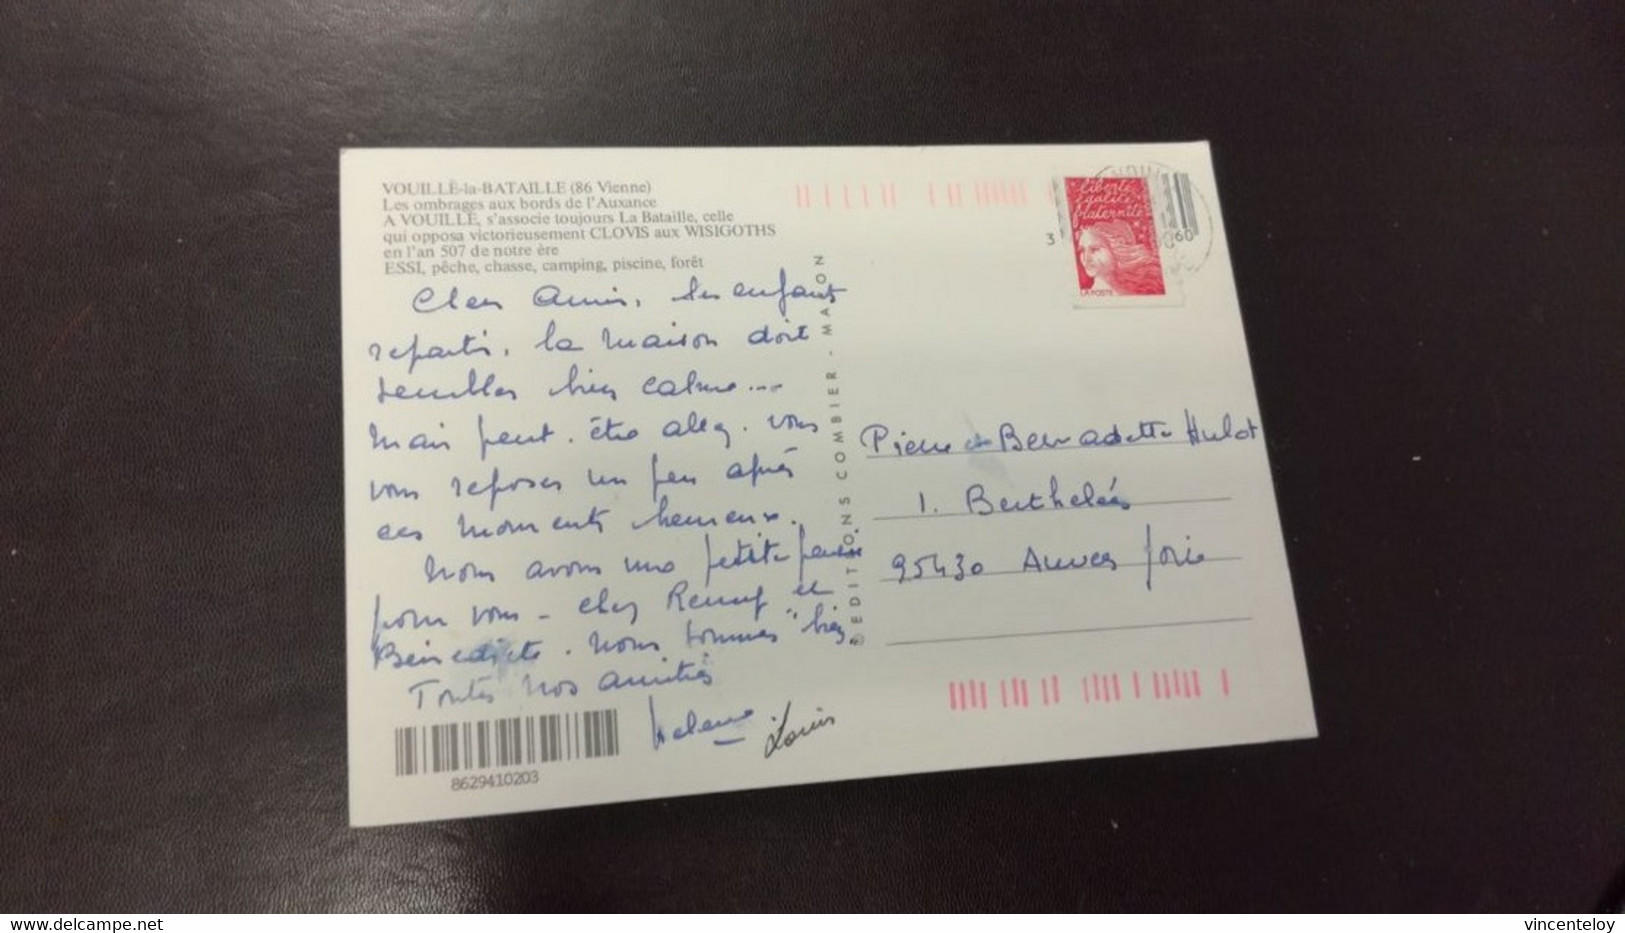 VOUILLÉ-la-BATAILLE (86 Vienne)
Les ombrages aux bords de l'Auxance
A VOUILLÉ, s'associe toujours La Bataille, celle
qui opposa victorieusement CLOVIS aux WISIGOTHS
en l'an 507 de notre ère
ESSI, pêche, chasse, camping, piscine, forêt
Chers Amis, les enfants
repartis, la maison doit
sembler bien calme...
mais peut-être allez-vous
vous reposer un peu après
ces moments heureux.
Nous avons une petite pensée
pour vous - chez et
Bénédicte. Nous sommes "bien
Toutes nos amitiés
Louis
8629410203
EDITIONS COMBIER - MACON
liberté
égalité
fraternité
LA POSTE
3
60
Pierre et Bernadette Hulot
1. Berthelées
95430 Auvers s/oise
delcampe.net
vincenteloy